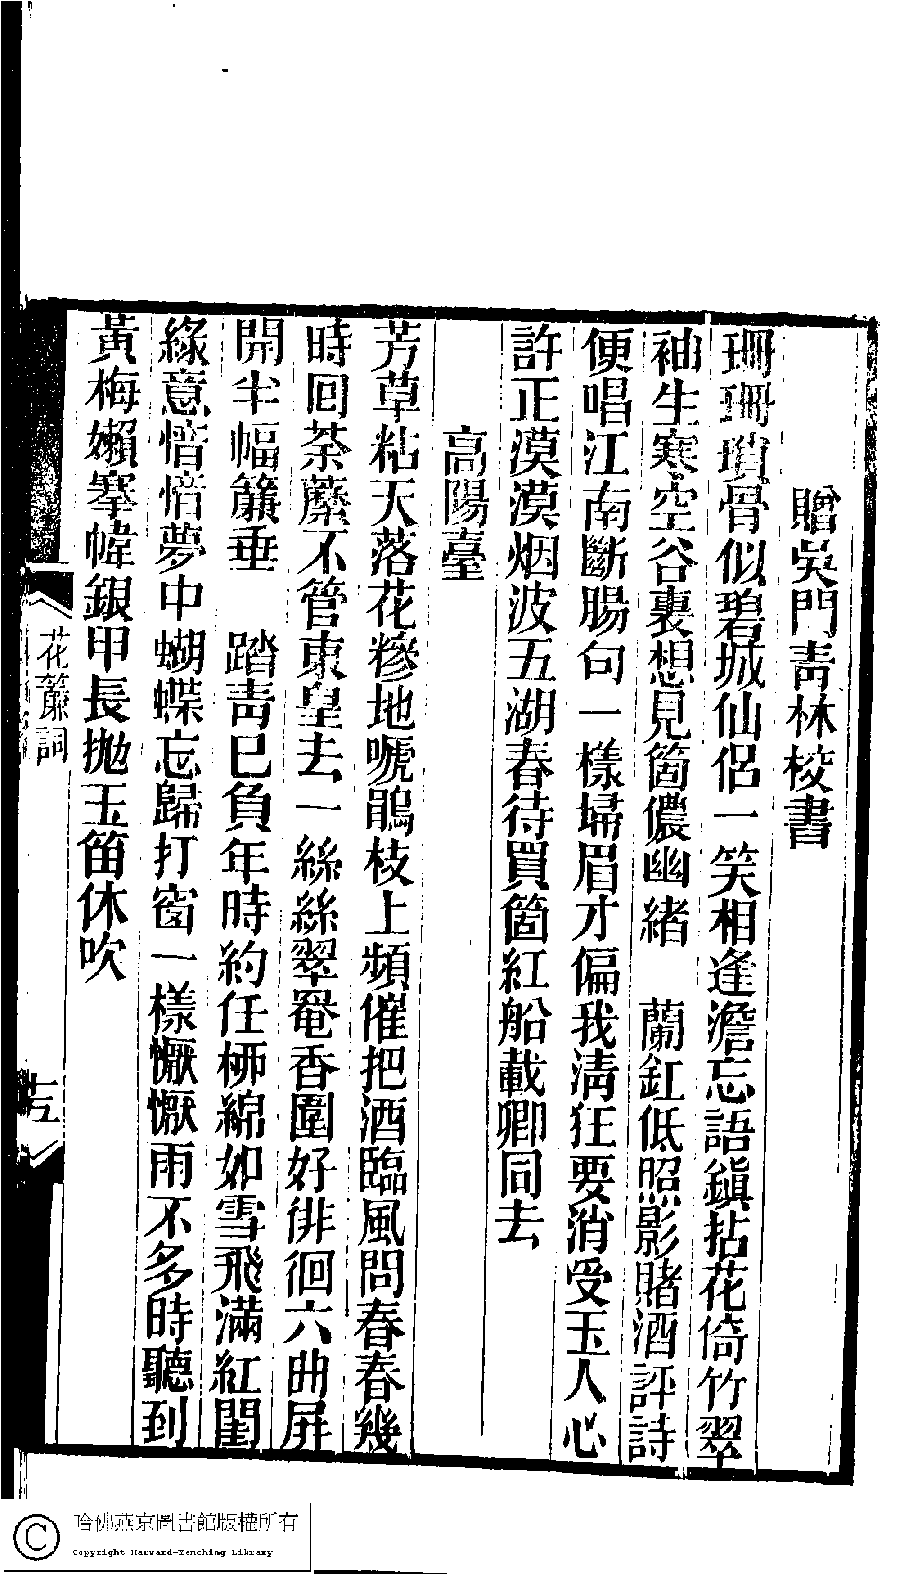 贈吳門靑林校書
珊珊瑣骨似碧城仙侶一笑相逢澹忘語鎭拈花倚竹翠
袖生寒空谷裏想見箇儂幽緒　蘭釭低照影賭酒評詩
便唱江南斷腸句一樣埽眉才偏我淸狂要消受玉人心
許正漠漠烟波五湖春待買箇紅船載卿同去
高陽臺
芳草粘天落花糝地唬鵑枝上頻催把酒臨風問春春幾
時回荼蘼不管東皇去一絲絲翠罨香圍好徘徊六曲屛
開半幅簾垂　踏靑已負年時約任桺綿如雪飛滿紅閨
綠意愔愔夢中蝴蝶忘歸打窗一樣懨懨雨不多時聽到
黃梅嬾搴幃銀甲長拋玉笛休吹
花簾詞
十五
哈佛燕京圖書館版權所有
Copyright Harvard-Yenching Library